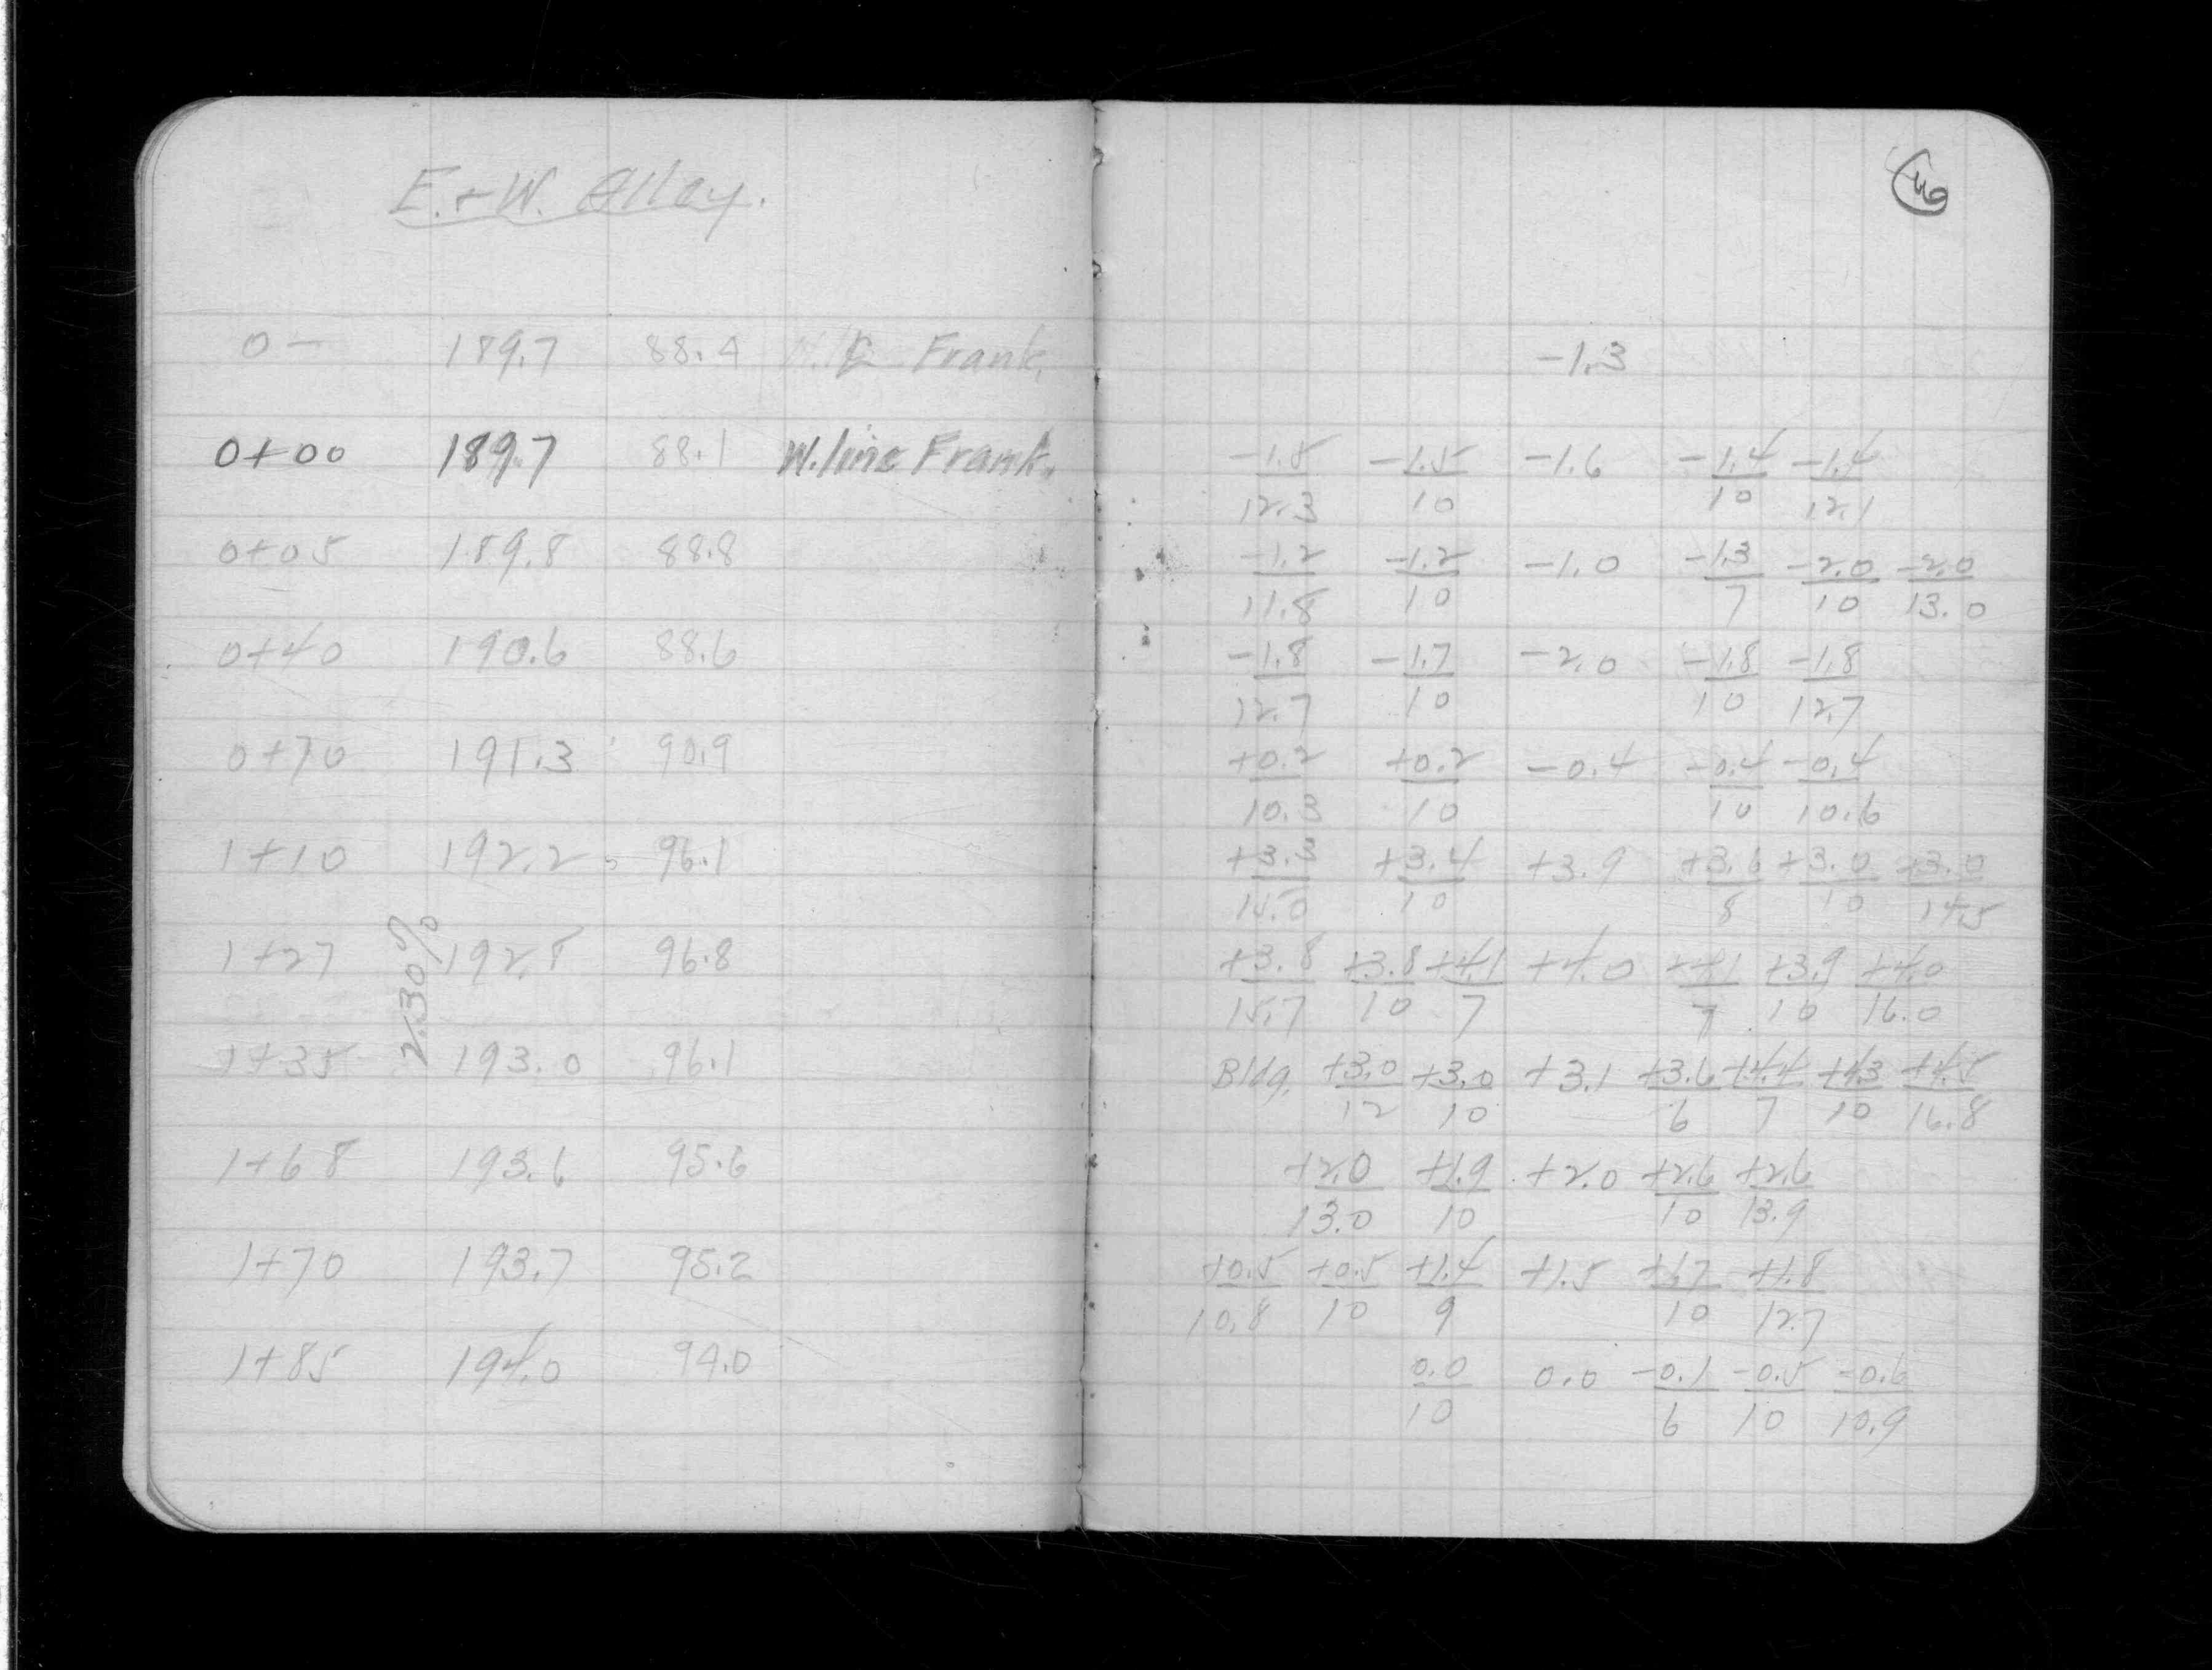 E. + W. Alley.
0- 189.7 88.4 Frank.
0+00 189.7 88.1 W. line Frank.
0+05 189.8 88.8
0+40 190.6 88.6
0+70 191.3 90.9
1+10 192.2 96.1
1+27 192.8 96.8
2.30%
1+35 193.0 96.1
1+68 193.6 95.6
1+70 193.7 95.2
1+85 194.0 94.0
-1.3
-1.5 -1.5 -1.6 -1.4 -1.4
12.3 10 10 12.1
-1.2 -1.2 -1.0 -1.3 -2.0 -2.0
11.8 10 7 10 13.0
-1.8 -1.7 -2.0 -1.8 -1.8
12.7 10 10 12.7
+0.2 +0.2 -0.4 -0.4 -0.4
10.3 10 10 10.6
+3.3 +3.4 +3.9 +3.6 +3.0 +3.0
10 8 10 14.5
+3.8 +3.8 +4.1 +4.0 +4.1 +3.9 +4.0
15.7 10 7 7 10 16.0
Bldg. +3.0 +3.0 +3.1 +3.6 +4.4 +4.3 +4.5
12 10 6 7 10 16.8
+2.0 +1.9 +2.0 +2.6 +2.6
13.0 10 10 13.9
+0.5 +0.5 +1.4 +1.5 +1.7 +1.8
10.8 10 9 10 12.7
0.0 0.0 -0.1 -0.5 -0.6
10 6 10 10.9